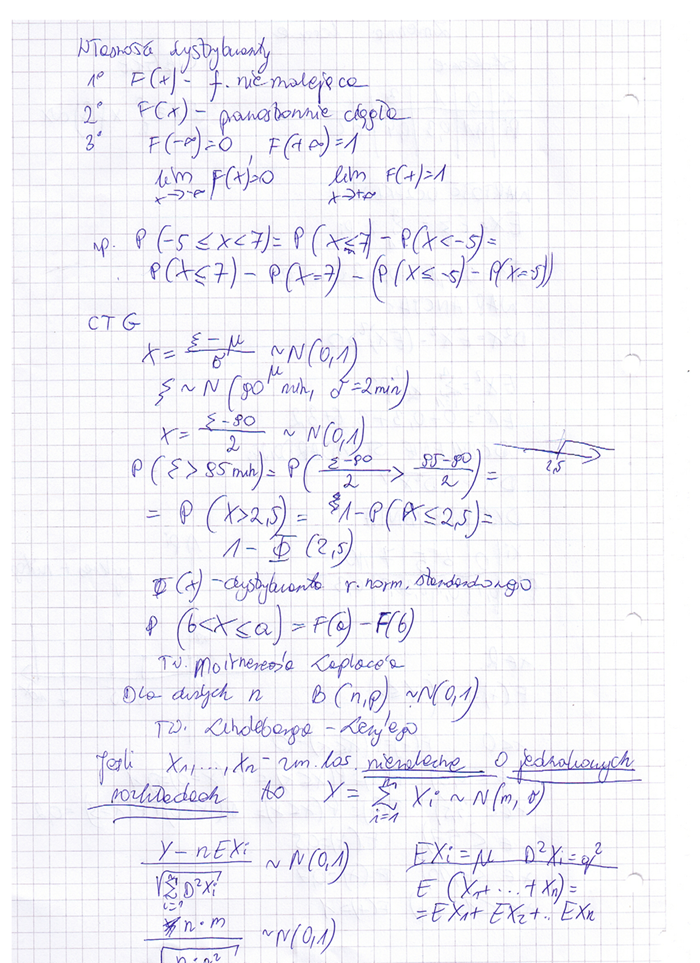 Własności dystrybuanty
1° F(x) - f. niemalejąca
2° F(x) - prawostronnie ciągła
3° F(-∞)=0, F(+∞)=1
lim x→-∞ F(x)=0 lim x→+∞ F(x)=1
np. P(-5 ≤ x < 7) = P(X≤7) - P(X<-5) =
P(X≤7) - P(X=7) - (P(X≤-5) - P(X=-5))
CTG
X = (ξ-μ)/σ ~ N(0,1)
ξ ~ N(90 min, σ=2min)
μ
X = (ξ-90)/2 ~ N(0,1)
P(ξ>95min) = P((ξ-90)/2 > (95-90)/2) =
2,5
= P(X>2,5) = 1-P(X≤2,5) =
1 - Φ(2,5)
Φ(x) - dystrybuanta r. norm. standardowego
P(b<X≤a) = F(a) - F(b)
Tw. Laplace'a
Dla dużych n B(n,p) ~N(0,1)
TW. Lindeberga - Levy'ego
Jeśli X1,...,Xn - zm. los. niezależne o jednakowych
rozkładach to Y = Σ i=1 n Xi ~ N(m, σ)
(Y - nEXi)/√(Σ i=1 n D²Xi) ~ N(0,1)
EXi = μ D²Xi = σ²
E(X1+...+Xn) =
= EX1 + EX2 + .. EXn
n·m ~N(0,1)